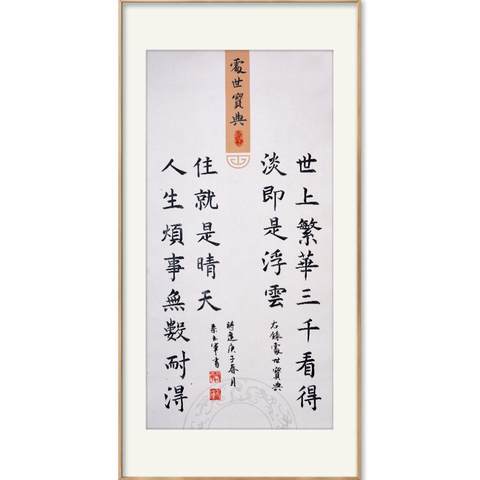 處世寶典
世上繁華三千看得
淡即是浮雲
右錄處世寶典
人生煩事無數耐得
住就是晴天
時逢庚子春月